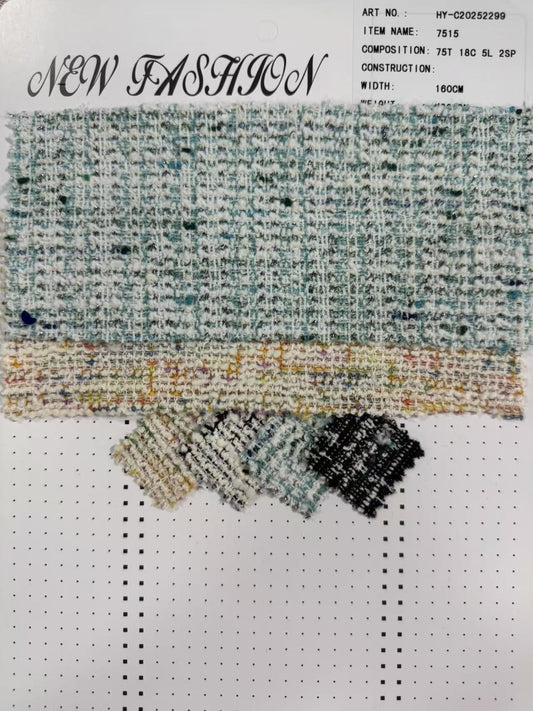 ART NO. : HY-C20252299
ITEM NAME: 7515
COMPOSITION: 75T 18C 5L 2SP
CONSTRUCTION:
WIDTH: 160CM
NEW FASHION